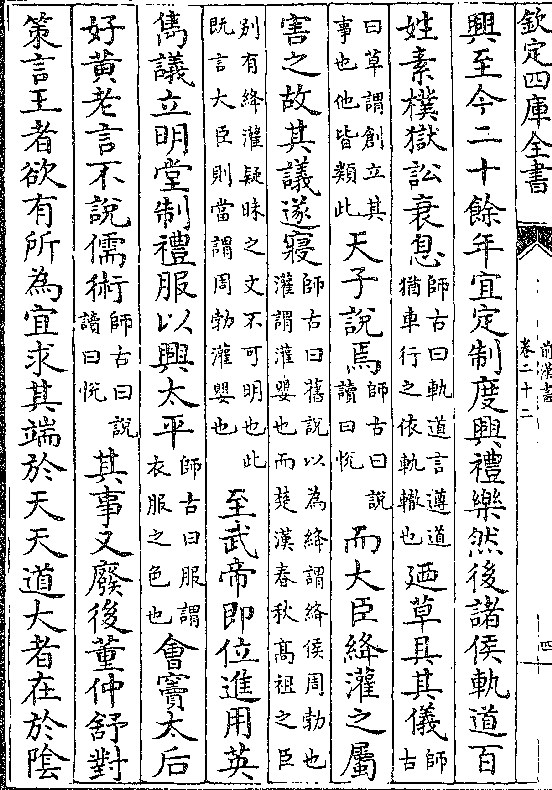 欽定四庫全書
前漢書
卷二十二
四
興至今二十餘年宜定制度興禮樂然後諸侯軌道百
姓素樸獄訟衰息師古曰軌道言遵道猶車行之依軌轍也廼草具其儀師古
曰草謂創立其事也他皆類此天子說焉師古曰說讀曰悅而大臣絳灌之屬
害之故其議遂寢師古曰舊說以為絳謂絳侯周勃也灌謂灌嬰也而楚漢春秋髙祖之臣
別有絳灌疑昧之文不可明也此既言大臣則當謂周勃灌嬰也至武帝即位進用英
雋議立明堂制禮服以興太平師古曰服謂衣服之色也會竇太后
好黃老言不說儒術師古曰說讀曰悅其事又廢後董仲舒對
策言王者欲有所為宜求其端於天天道大者在於陰